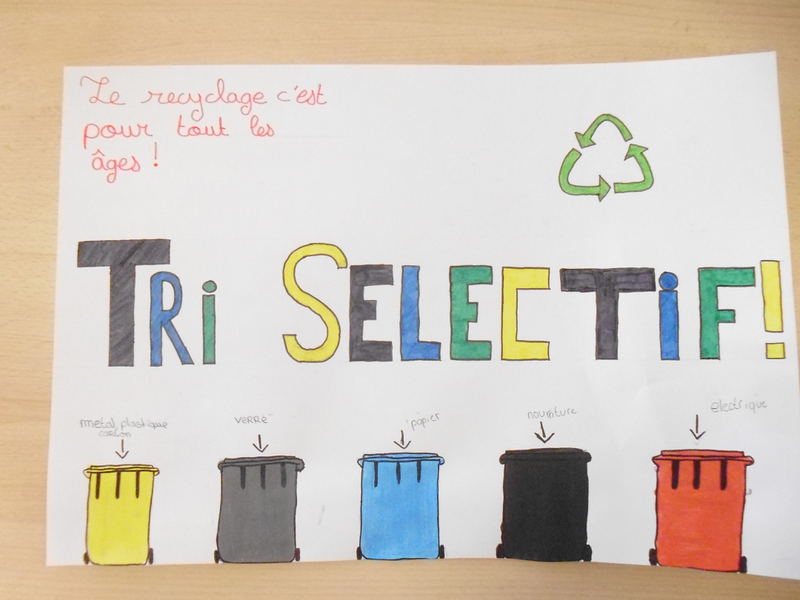 Le recyclage c'est
pour tout les
âges !
TRi SELECTiF!
metal, plastique
carton
verre
papier
nourriture
electrique